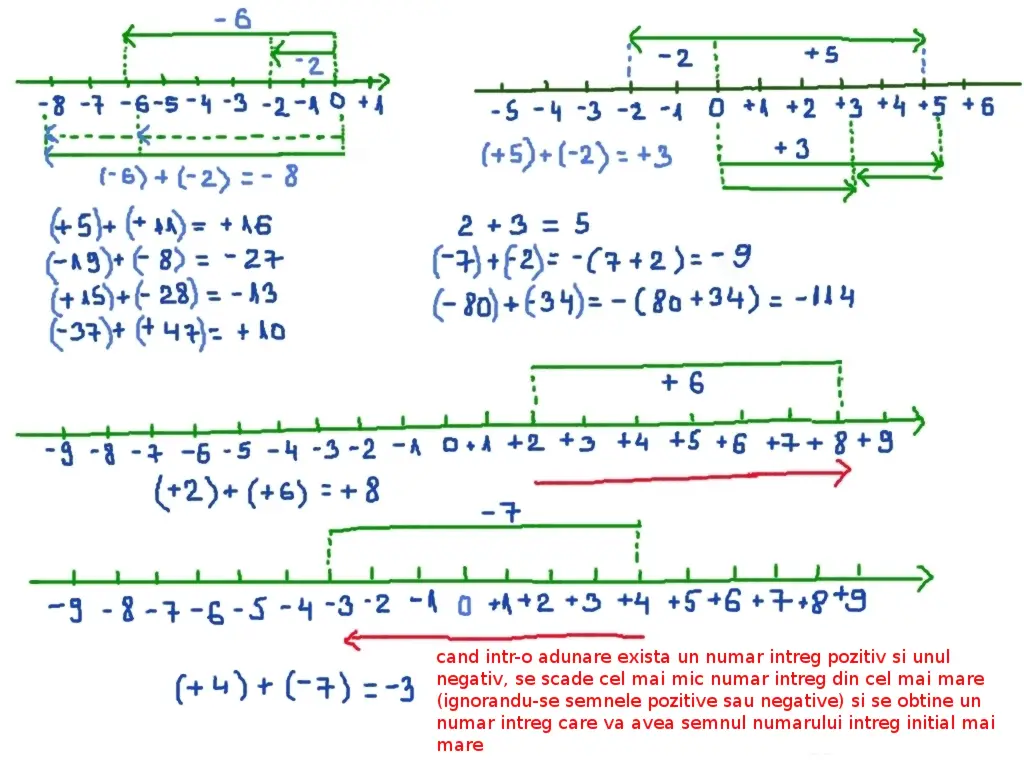 -6
-2
-8 -7 -6 -5 -4 -3 -2 -1 0 +1
(-6)+(-2)=-8
-2 +5
-5 -4 -3 -2 -1 0 +1 +2 +3 +4 +5 +6
(+5)+(-2)=+3
+3
(+5)+(+11)=+16
(-19)+(-8)=-27
(+15)+(-28)=-13
(-37)+(+47)=+10
2+3=5
(-7)+(-2)=-(7+2)=-9
(-80)+(-34)=-(80+34)=-114
+6
-9 -8 -7 -6 -5 -4 -3 -2 -1 0 +1 +2 +3 +4 +5 +6 +7 +8 +9
(+2)+(+6)=+8
-7
-9 -8 -7 -6 -5 -4 -3 -2 -1 0 +1 +2 +3 +4 +5 +6 +7 +8 +9
(+4)+(-7)=-3
cand intr-o adunare exista un numar intreg pozitiv si unul
negativ, se scade cel mai mic numar intreg din cel mai mare
(ignorandu-se semnele pozitive sau negative) si se obtine un
numar intreg care va avea semnul numarului intreg initial mai
mare